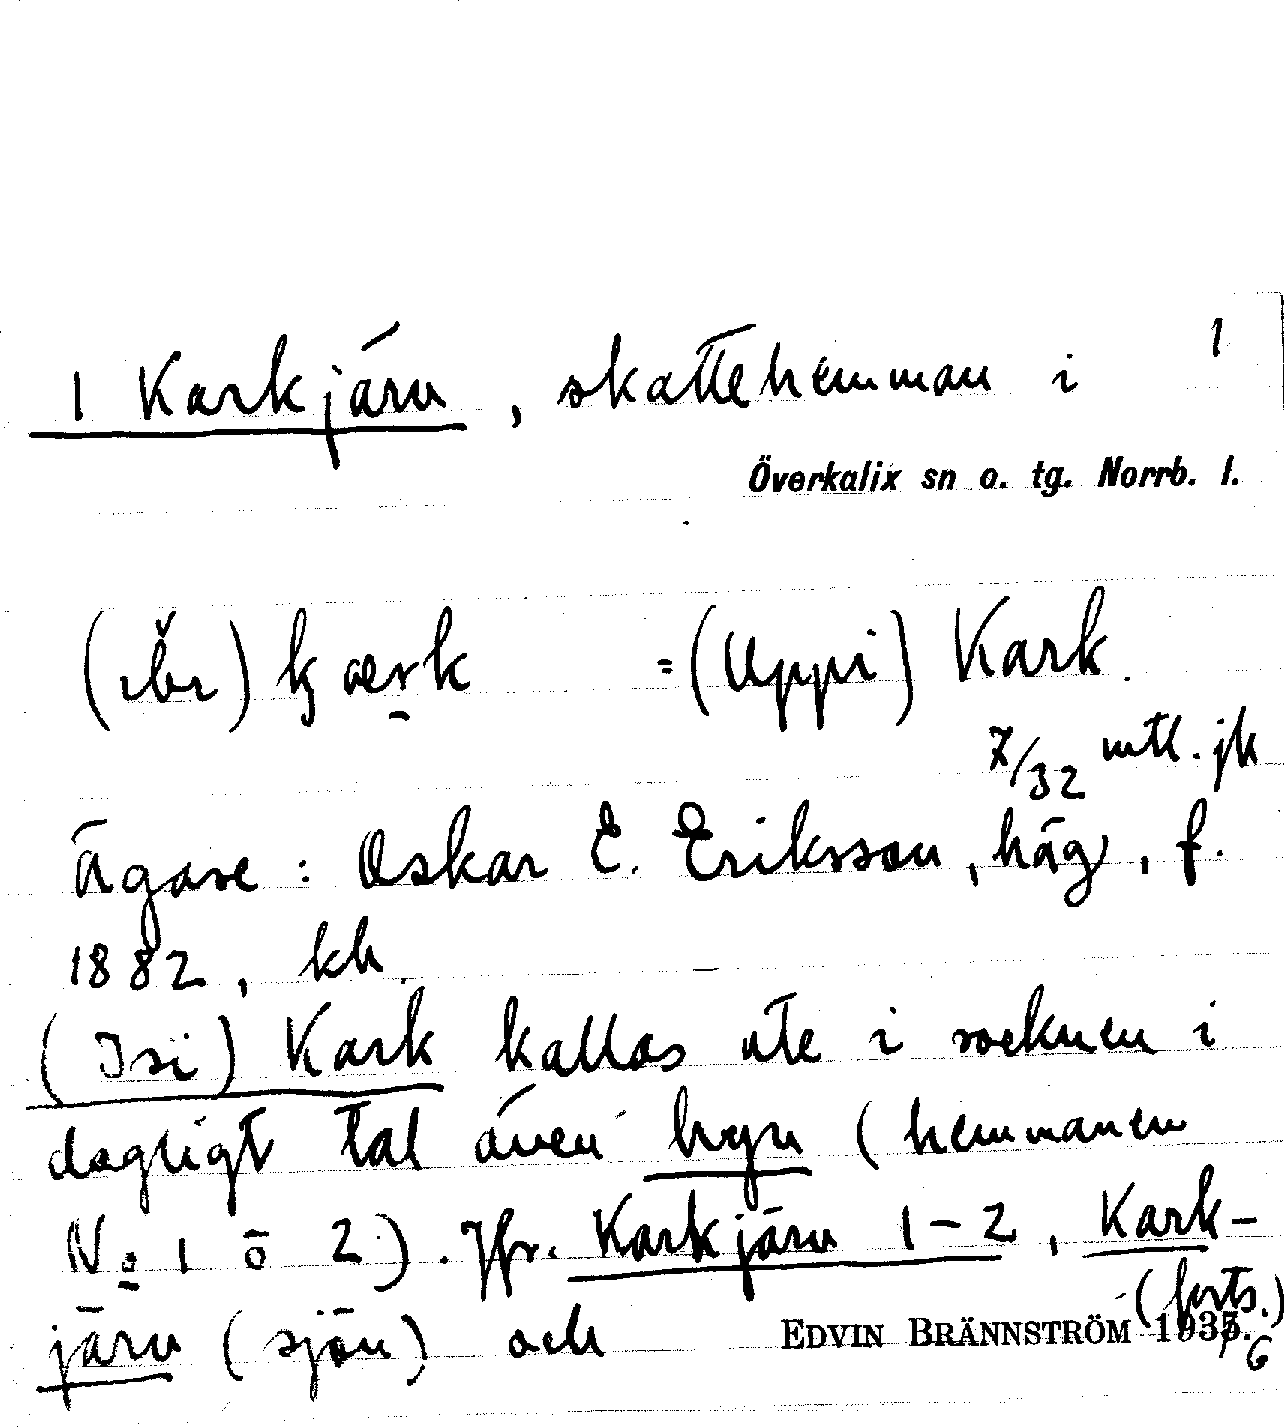 1
1 Karkjärv, skattehemman i
Överkalix sn o. tg. Norrb. l.
= (Uppi) Kark.
7/32 mtl. jk
Ägare: Oskar E. Eriksson, häg, f.
1882, kh.
(Isi) Kark kallas ute i socknen i
dagligt tal även byn (hemmanen
No 1 o 2). Jfr. Karkjärv 1-2, Kark-
järv (sjön) och
(forts.)
EDVIN BRÄNNSTRÖM 1936